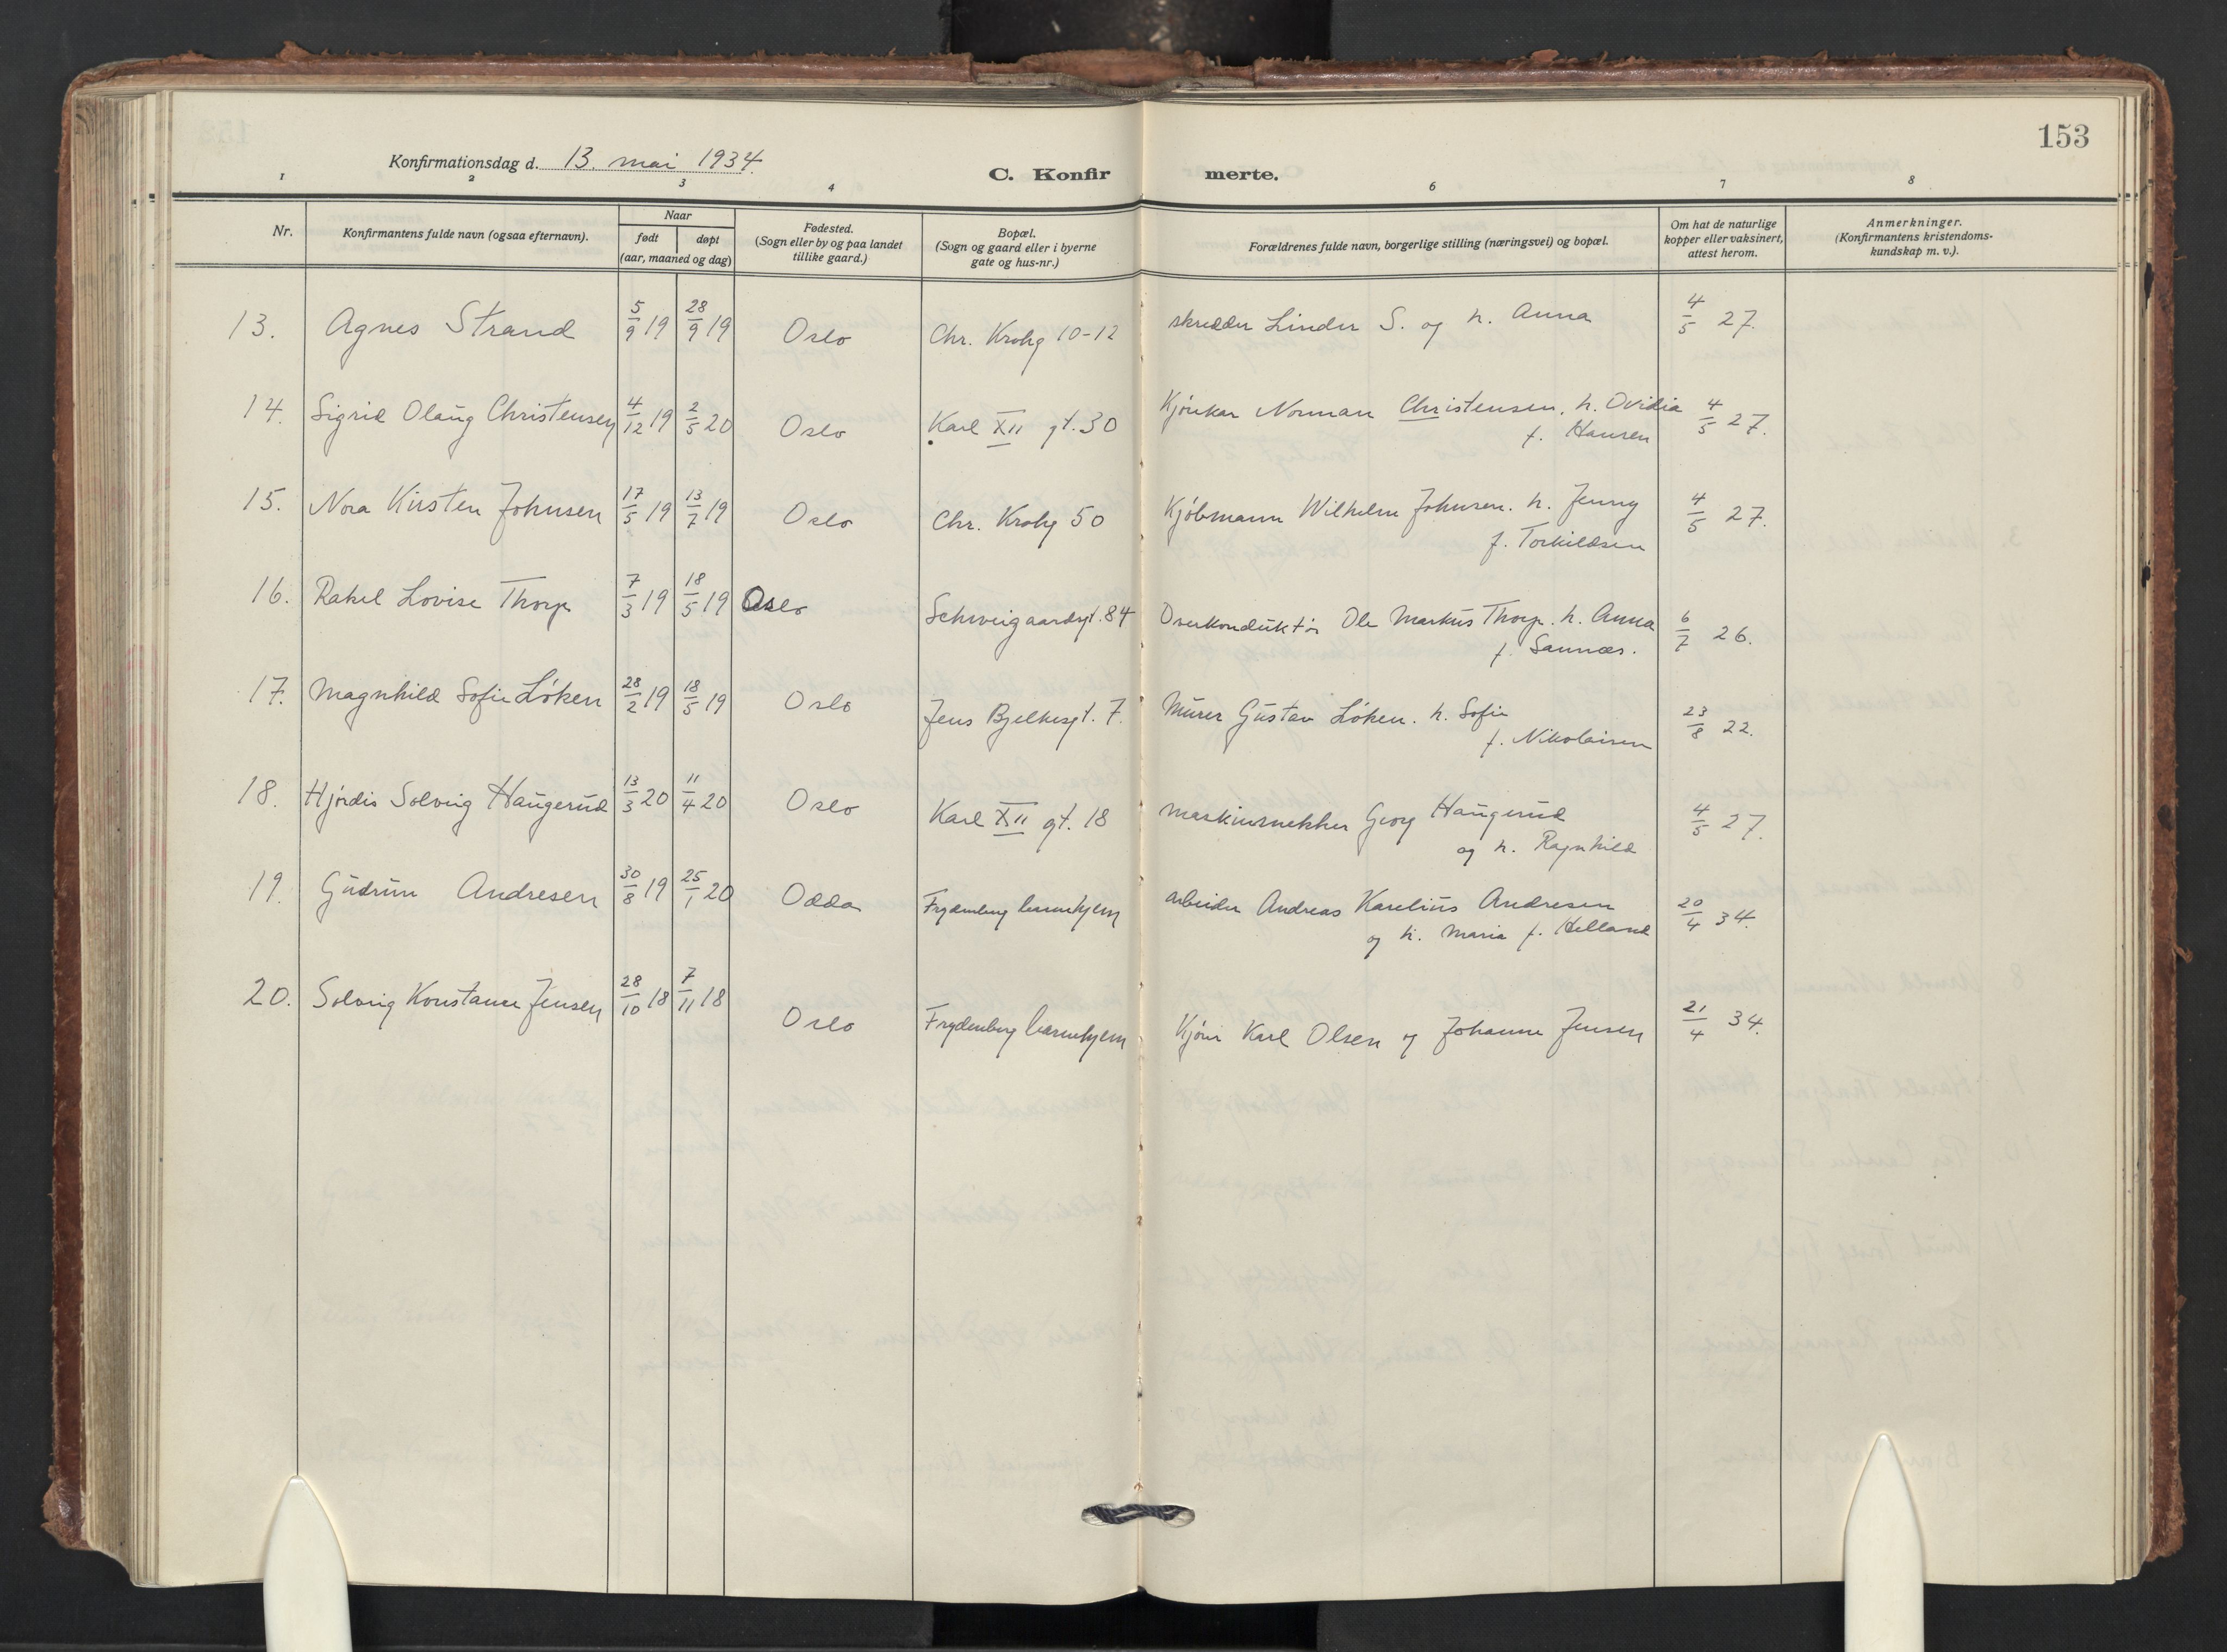 153
Konfirmationsdag d. 13. mai 1934.
C. Konfirmerte.
1 2 3 4 6 7 8
Nr.
Konfirmantens fulde navn (ogsaa efternavn).
Naar
født døpt
(aar, maaned og dag)
Fødested.
(Sogn eller by og paa landet
tillike gaard.)
Bopæl.
(Sogn og gaard eller i byerne
gate og hus-nr.)
Forældrenes fulde navn, borgerlige stilling (næringsvei) og bopæl.
Om hat de naturlige
kopper eller vaksinert,
attest herom.
Anmerkninger.
(Konfirmantens kristendoms-
kundskap m. v.).
13. Agnes Strand 5/9 19 28/9 19 Oslo Chr. Krohg 10-12 skredder Linder S. og h. Anna 4/5 27.
14. Sigrid Olaug Christensen 4/12 19 2/5 20 Oslo Karl XII gt. 30 Kjørekar Norman Christensen. h. Ovidia 4/5 27.
f. Hansen
15. Nora Kirsten Johnsen 17/5 19 13/7 19 Oslo Chr. Krohg 50 Kjøbmann Wilhelm Johnsen. h. Jenny 4/5 27.
f. Torkildsen
16. Rakel Lovise Thorp 7/3 19 18/5 19 Oslo Schweigaardsgt. 84 Overkonduktør Ole Markus Thorp. h. Anna 6/7 26.
f. Sannæs.
17. Magnhild Sofie Løken 28/2 19 18/5 19 Oslo Jens Bjelkesgt. 7. Murer Gustav Løken. h. Sofie 23/8 22.
f. Nikolaisen
18. Hjørdis Solveig Haugerud 13/3 20 11/4 20 Oslo Karl XII gt. 18 maskinsnekker Georg Haugerud 4/5 27.
og h. Ragnhild
19. Gudrun Andresen 30/8 19 25/1 20 Odda Frydenberg barnehjem arbeider Andreas Karelius Andresen 20/4 34.
og h. Maria f. Helland
20. Solveig Konstance Jensen 28/10 18 7/11 18 Oslo Frydenberg barnehjem Karl Olsen og Johanne Jensen 21/4 34.